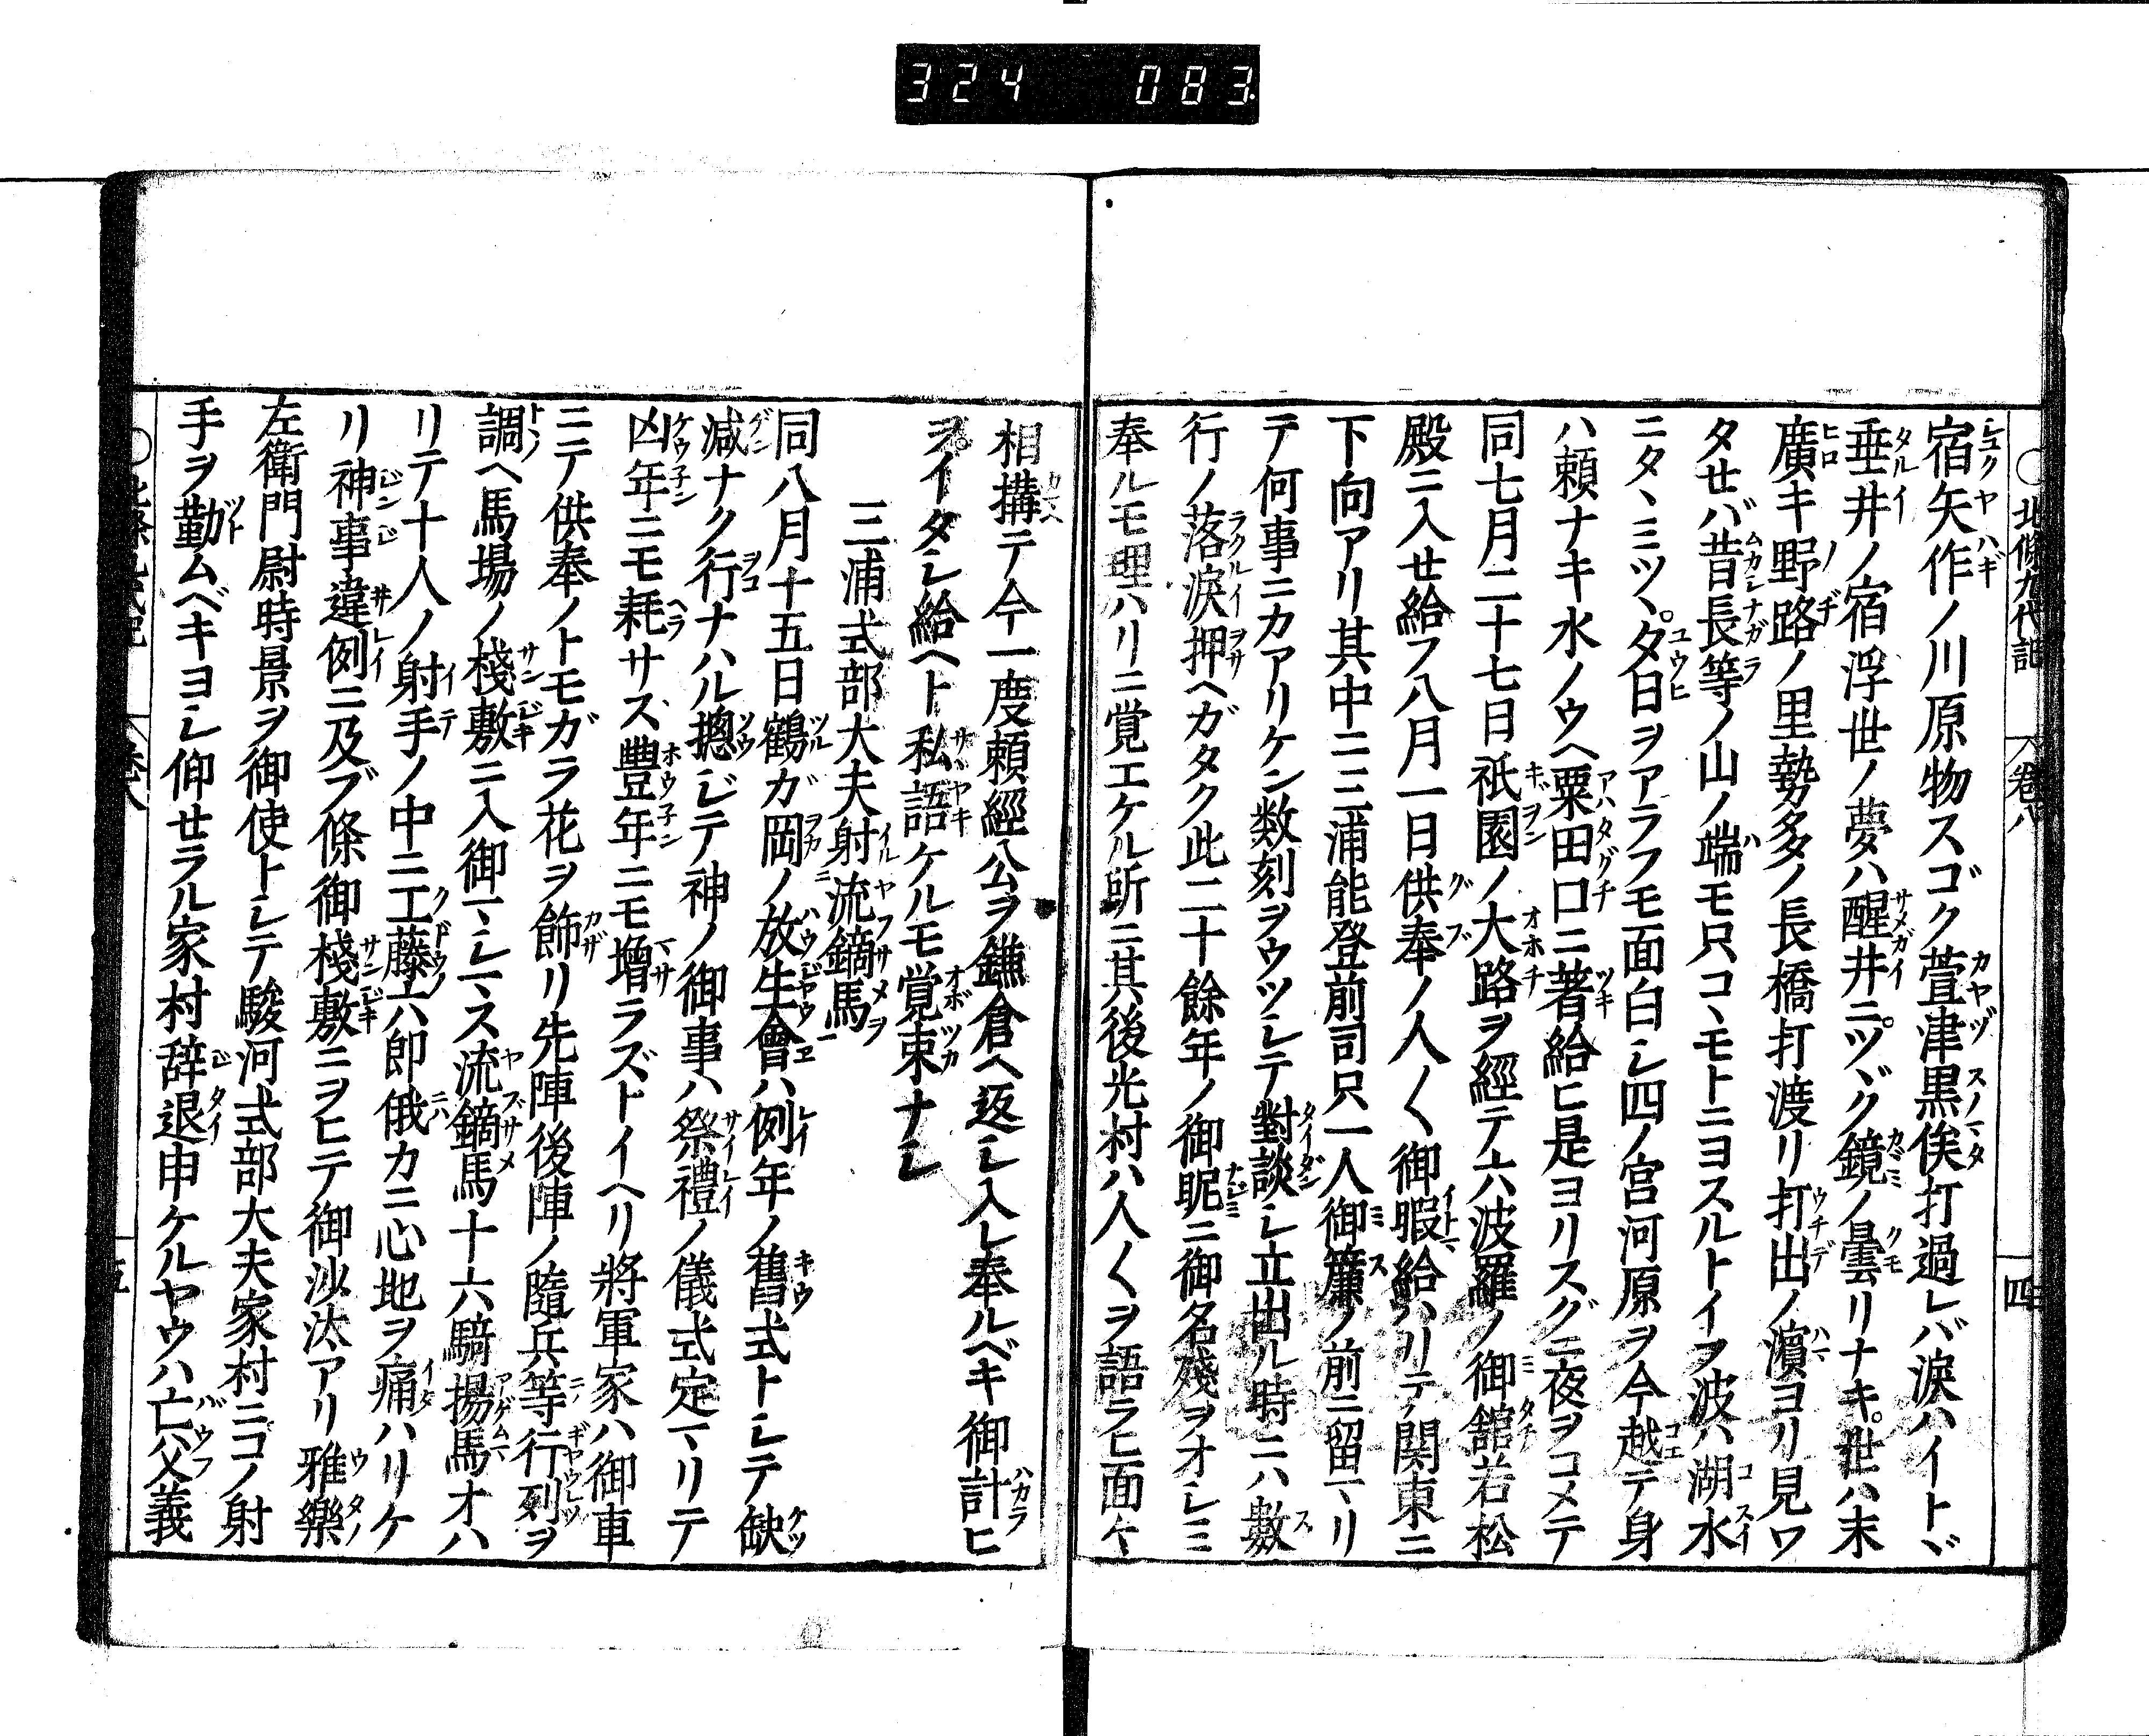 324 083.
○北條九代記 卷八 四
宿矢作ノ川原物スゴク萱津黒俣打過レバ涙ハイトヾ
垂井ノ宿浮世ノ夢ハ醒井ニツヾク鏡ノ曇リナキ世ハ末
廣キ野路ノ里勢多ノ長橋打渡リ打出ノ濵ヨリ見ワ
タセバ昔長等ノ山ノ端モ只コヽモトニヨスルトイヲ波ハ湖水
ニタヽミツヽ夕日ヲアラフモ面白シ四ノ宮河原ヲ今越テ身
ハ頼ナキ水ノウヘ粟田口ニ著給ヒ是ヨリスグニ夜ヲコメテ
同七月二十七日祇園ノ大路ヲ經テ六波羅ノ御舘若松
殿ニ入せ給フ八月一日供奉ノ人〱御暇給ハリテ関東ニ
下向アリ其中ニ三浦能登前司只一人御簾ノ前ニ留マリ
テ何事ニカアリケン数刻ヲウツシテ對談シ立出ル時ニハ數
行ノ落涙押ヘガタク此二十餘年ノ御眤ニ御名殘ヲオシミ
奉ルモ理ハリニ覚エケル所ニ其後光村ハ人〱ヲ語ラヒ面々
相構テ今一度頼經公ヲ鎌倉ヘ返シ入レ奉ルベキ御計ヒ
ヲイタシ給ヘト私語ケルモ覚束ナシ
三浦式部大夫射流鏑馬
同八月十五日鶴ガ岡ノ放生會ハ例年ノ舊式トシテ缺
減ナク行ナハル揔ジテ神ノ御事ハ祭禮ノ儀式定マリテ
凶年ニモ耗サス豐年ニモ增ラズトイヘリ將軍家ハ御車
ニテ供奉ノトモガラ花ヲ飾リ先陣後陣ノ隨兵等行列ヲ
調ヘ馬場ノ棧敷ニ入御マシマス流鏑馬十六騎揚馬オハ
リテ十人ノ射手ノ中ニ工藤六郎俄カニ心地ヲ痛ハリケ
リ神事違例ニ及ブ條御棧敷ニヲヒテ御沙汰アリ雅樂
左衛門尉時景ヲ御使トシテ駿河式部大夫家村ニコノ射
手ヲ勤ムベキヨシ仰せラル家村辞退申ケルヤウハ亡父義
○北條九代記 卷八 五